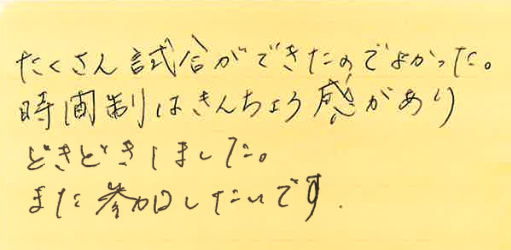 たくさん試合ができたのでよかった。
時間制はきんちょう感があり
どきどきしました。
また参加したいです.